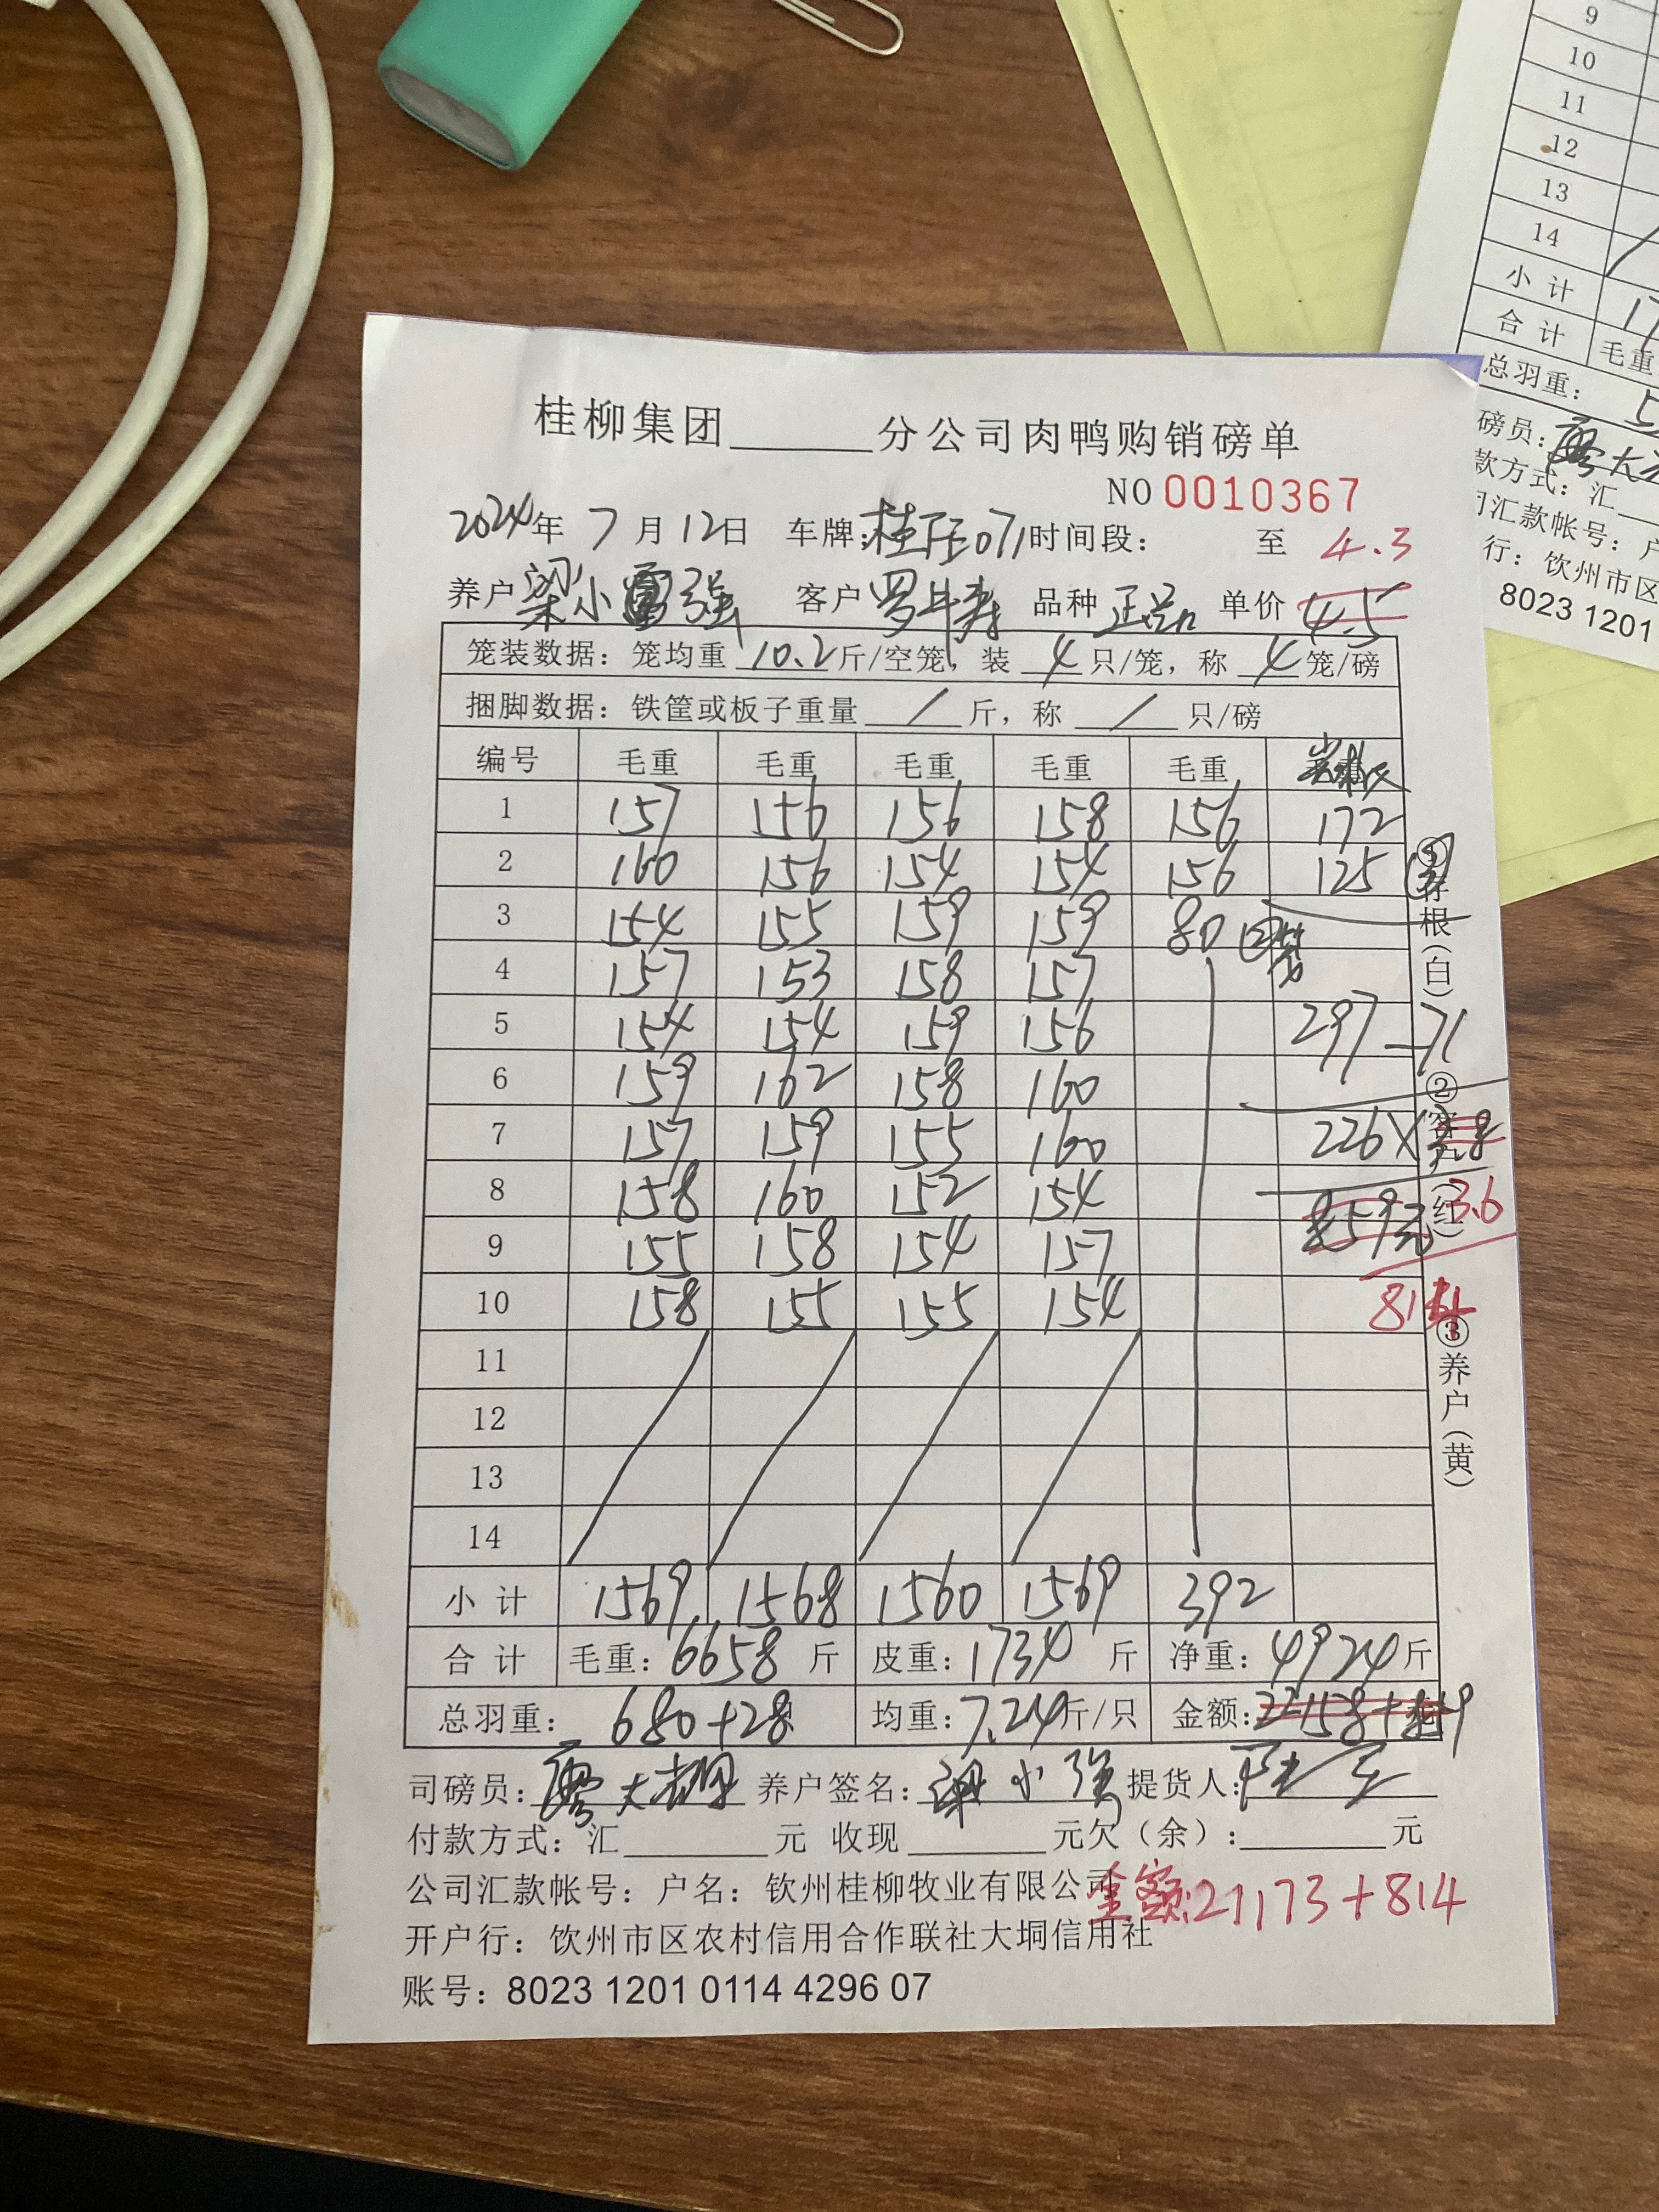 桂柳集团______分公司肉鸭购销磅单
NO 0010367
2024年 7月12日 车牌: 071 时间段: 至 4.3
养户 梁小强 客户 罗 品种 正品 单价 4.5
笼装数据：笼均重 10.2 斤/空笼，装 4 只/笼，称 4 笼/磅
捆脚数据：铁筐或板子重量 / 斤，称 / 只/磅
编号 毛重 毛重 毛重 毛重 毛重
1 157 156 156 158 156 172
2 160 156 154 154 156 125
3 154 155 159 159 80 ②笼
4 157 153 158 157
5 154 154 159 156 297-71
6 159 162 158 160
7 157 159 155 160 226×3.8
8 158 160 152 154 859元 3.6
9 155 158 154 157
10 158 155 155 154 814
11
12
13
14
小计 1569 1568 1560 1569 392
合计 毛重：6658 斤 皮重：1734 斤 净重：4924斤
总羽重： 680+28 均重：7.24斤/只 金额：22158+859
司磅员：廖大 养户签名：梁小强 提货人：
付款方式：汇______元 收现______元欠（余）：______元
公司汇款帐号：户名：钦州桂柳牧业有限公司
金额:21173+814
开户行：钦州市区农村信用合作联社大垌信用社
账号：8023 1201 0114 4296 07
①存根（白）
②客户（红）
③养户（黄）
9
10
11
12
13
14
小计
合计 毛重
总羽重：
磅员：
款方式：汇
汇款帐号：户
行：钦州市区
8023 1201